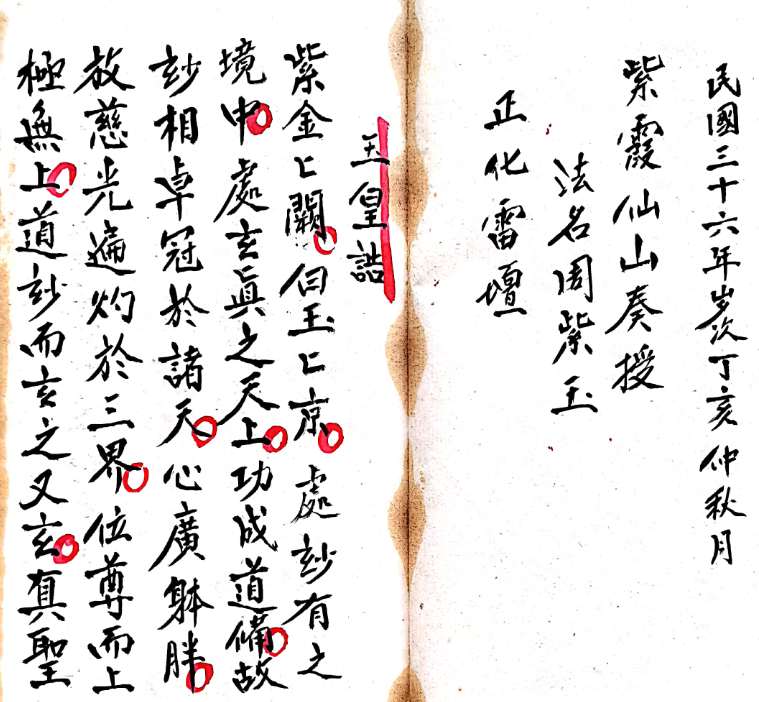 民國三十六年岁次丁亥仲秋月
紫霞仙山奏授
法名周紫玉
正化雷壇
玉皇誥
紫金匕闕白玉匕京處玅有之
境中處玄眞之天上功成道備故
玅相卓冠於諸天心廣躰胖
放慈光遍灼於三界位尊而上
極無上道玅而玄之又玄真聖